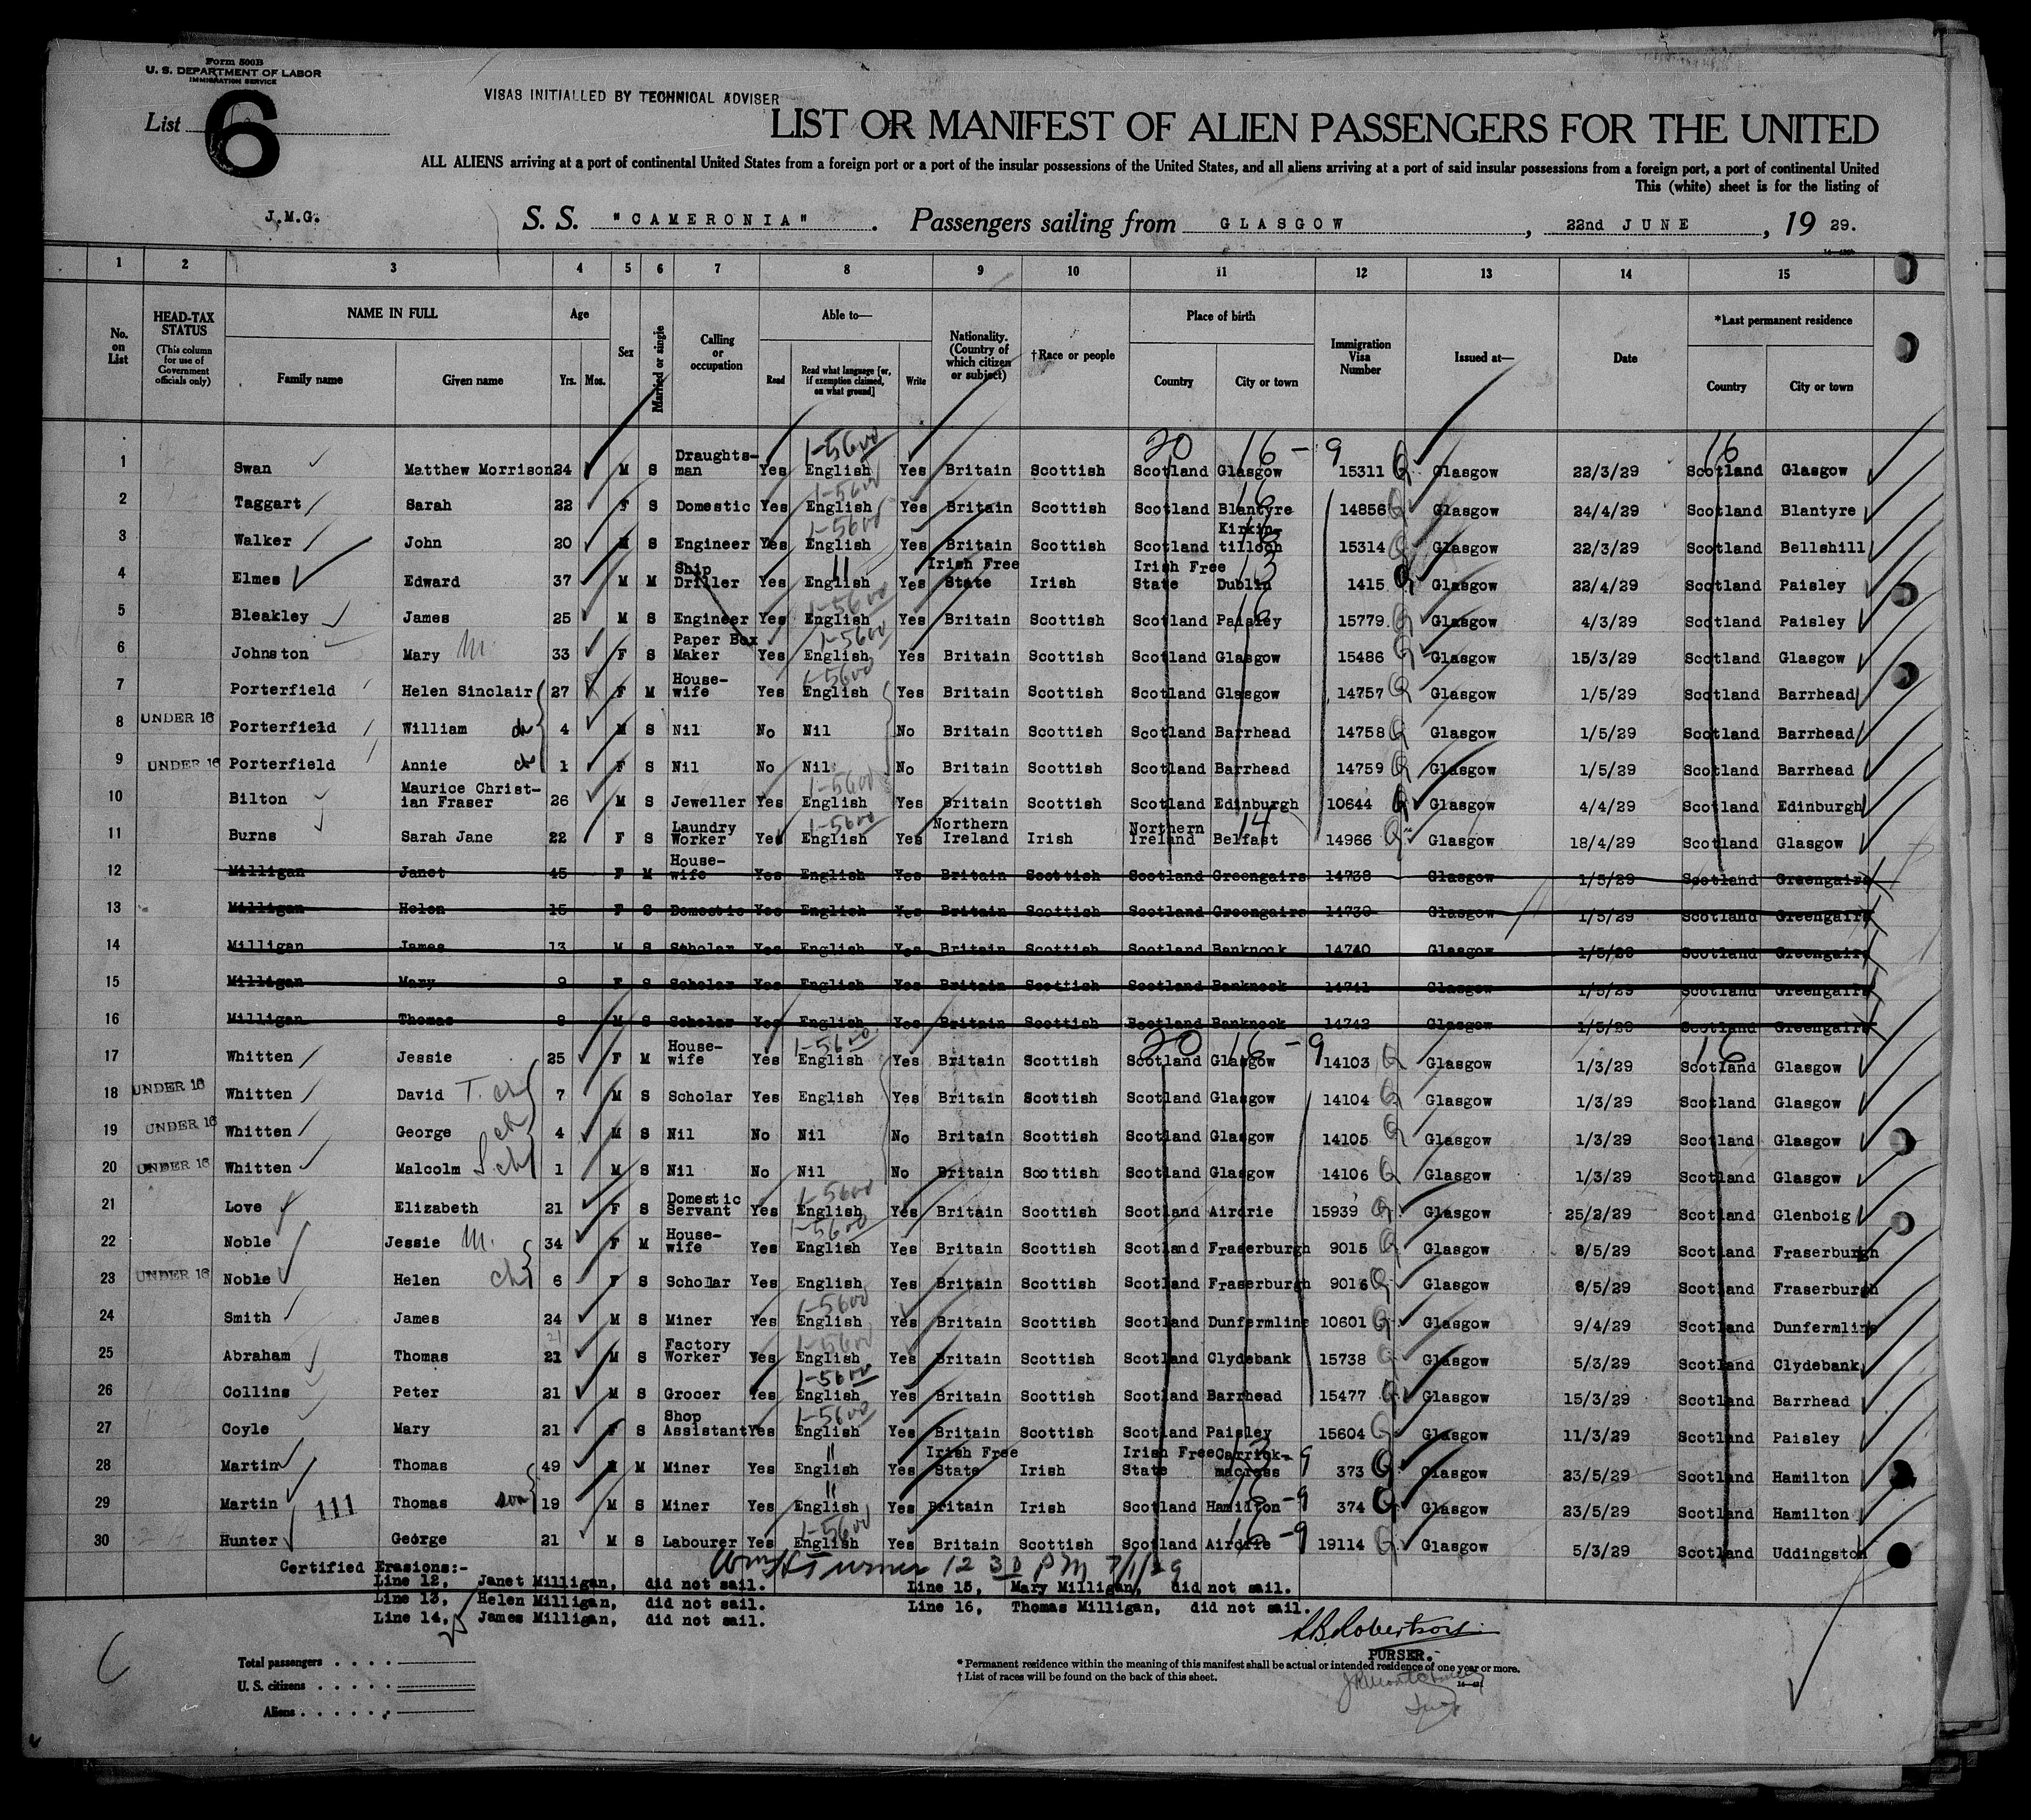 Form 500B
U. S. DEPARTMENT OF LABOR
IMMIGRATION SERVICE
VISAS INITIALLED BY TECHNICAL ADVISER
List 6
LIST OR MANIFEST OF ALIEN PASSENGERS FOR THE UNITED
ALL ALIENS arriving at a port of continental United States from a foreign port or a port of the insular possessions of the United States, and all aliens arriving at a port of said insular possessions from a foreign port, a port of continental United
This (white) sheet is for the listing of
J.M.G. S. S. "CAMERONIA". Passengers sailing from GLASGOW, 22nd JUNE, 19 29.
1 2 3 4 5 6 7 8 9 10 11 12 13 14 15
No. on List HEAD-TAX STATUS (This column for use of Government officials only) NAME IN FULL Family name Given name Age Yrs. Mos. Sex Married or single Calling or occupation Able to— Read Read what language [or, if exemption claimed, on what ground] Write Nationality. (Country of which citizen or subject) †Race or people Place of birth Country City or town Immigration Visa Number Issued at— Date *Last permanent residence Country City or town
20 16 - 9 16
1 Swan Matthew Morrison 24 M S Draughts-man Yes 1-5600 English Yes Britain Scottish Scotland Glasgow 15311 Q Glasgow 22/3/29 Scotland Glasgow
2 Taggart Sarah 22 F S Domestic Yes 1-5600 English Yes Britain Scottish Scotland Blantyre 16 14856 Q Glasgow 24/4/29 Scotland Blantyre
3 Walker John 20 M S Engineer Yes 1-5600 English Yes Britain Scottish Scotland Kirkin-tilloch 15314 Q Glasgow 22/3/29 Scotland Bellshill
4 Elmes Edward 37 M M Ship Driller Yes " English Yes Irish Free State Irish Irish Free State Dublin 13 1415 Q Glasgow 22/4/29 Scotland Paisley
5 Bleakley James 25 M S Engineer Yes 1-5600 English Yes Britain Scottish Scotland Paisley 16 15779 Q Glasgow 4/3/29 Scotland Paisley
6 Johnston Mary M. 33 F S Paper Box Maker Yes 1-5600 English Yes Britain Scottish Scotland Glasgow 15486 Q Glasgow 15/3/29 Scotland Glasgow
7 Porterfield Helen Sinclair 27 F M House-wife Yes 1-5600 English Yes Britain Scottish Scotland Glasgow 14757 Q Glasgow 1/5/29 Scotland Barrhead
8 UNDER 16 Porterfield William ch 4 M S Nil No Nil No Britain Scottish Scotland Barrhead 14758 Q Glasgow 1/5/29 Scotland Barrhead
9 UNDER 16 Porterfield Annie ch 1 F S Nil No Nil No Britain Scottish Scotland Barrhead 14759 Q Glasgow 1/5/29 Scotland Barrhead
10 Bilton Maurice Christ-ian Fraser 26 M S Jeweller Yes 1-5600 English Yes Britain Scottish Scotland Edinburgh 10644 Q Glasgow 4/4/29 Scotland Edinburgh
11 Burns Sarah Jane 22 F S Laundry Worker Yes 1-5600 English Yes Northern Ireland Irish Northern Ireland Belfast 14 14966 Q Glasgow 18/4/29 Scotland Glasgow
12 Milligan Janet 45 F M House-wife Yes English Yes Britain Scottish Scotland Greengairs 14738 Glasgow 1/5/29 Scotland Greengairs
13 Milligan Helen 15 F S Domestic Yes English Yes Britain Scottish Scotland Greengairs 14739 Glasgow 1/5/29 Scotland Greengairs
14 Milligan James 13 M S Scholar Yes English Yes Britain Scottish Scotland Banknock 14740 Glasgow 1/5/29 Scotland Greengairs
15 Milligan Mary 9 F S Scholar Yes English Yes Britain Scottish Scotland Banknock 14741 Glasgow 1/5/29 Scotland Greengairs
16 Milligan Thomas 8 M S Scholar Yes English Yes Britain Scottish Scotland Banknock 14742 Glasgow 1/5/29 Scotland Greengairs
20 16 - 9 16
17 Whitten Jessie 25 F M House-wife Yes 1-5600 English Yes Britain Scottish Scotland Glasgow 14103 Q Glasgow 1/3/29 Scotland Glasgow
18 UNDER 16 Whitten David T. ch 7 M S Scholar Yes English Yes Britain Scottish Scotland Glasgow 14104 Q Glasgow 1/3/29 Scotland Glasgow
19 UNDER 16 Whitten George ch 4 M S Nil No Nil No Britain Scottish Scotland Glasgow 14105 Q Glasgow 1/3/29 Scotland Glasgow
20 UNDER 16 Whitten Malcolm S. ch 1 M S Nil No Nil No Britain Scottish Scotland Glasgow 14106 Q Glasgow 1/3/29 Scotland Glasgow
21 Love Elizabeth 21 F S Domestic Servant Yes 1-5600 English Yes Britain Scottish Scotland Airdrie 15939 Q Glasgow 25/2/29 Scotland Glenboig
22 Noble Jessie M. 34 F M House-wife Yes 1-5600 English Yes Britain Scottish Scotland Fraserburgh 9015 Q Glasgow 8/5/29 Scotland Fraserburgh
23 UNDER 16 Noble Helen ch 6 F S Scholar Yes English Yes Britain Scottish Scotland Fraserburgh 9016 Q Glasgow 8/5/29 Scotland Fraserburgh
24 Smith James 24 M S Miner Yes 1-5600 English Yes Britain Scottish Scotland Dunfermline 10601 Q Glasgow 9/4/29 Scotland Dunfermline
25 Abraham Thomas 21 M S Factory Worker Yes 1-5600 English Yes Britain Scottish Scotland Clydebank 15738 Q Glasgow 5/3/29 Scotland Clydebank
26 Collins Peter 21 M S Grocer Yes 1-5600 English Yes Britain Scottish Scotland Barrhead 15477 Q Glasgow 15/3/29 Scotland Barrhead
27 Coyle Mary 21 F S Shop Assistant Yes 1-5600 English Yes Britain Scottish Scotland Paisley 15604 Q Glasgow 11/3/29 Scotland Paisley
28 Martin Thomas 49 M M Miner Yes " English Yes Irish Free State Irish Irish Free State Carrick-macross 13 9 373 Q Glasgow 23/5/29 Scotland Hamilton
29 Martin 111 Thomas son 19 M S Miner Yes " English Yes Britain Irish Scotland Hamilton 16 -9 374 Q Glasgow 23/5/29 Scotland Hamilton
30 Hunter George 21 M S Labourer Yes 1-5600 English Yes Britain Scottish Scotland Airdrie 16 -9 19114 Q Glasgow 5/3/29 Scotland Uddingston
Certified Erasions:- Wm H Turner 12 30 PM 7/1/29
Line 12, Janet Milligan, did not sail. Line 15, Mary Milligan, did not sail.
Line 13, Helen Milligan, did not sail. Line 16, Thomas Milligan, did not sail.
Line 14, James Milligan, did not sail.
Robertson
PURSER.
Total passengers
U. S. citizens
Aliens
* Permanent residence within the meaning of this manifest shall be actual or intended residence of one year or more.
† List of races will be found on the back of this sheet.